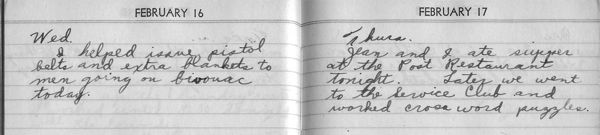 FEBRUARY 16
Wed.
I helped issue pistol
belts and extra blankets to
men going on bivouac
today.
FEBRUARY 17
Thurs.
Jean and I ate supper
at the Post Restaurant
tonight. Later we went
to the Service Club and
worked cross word puzzles.